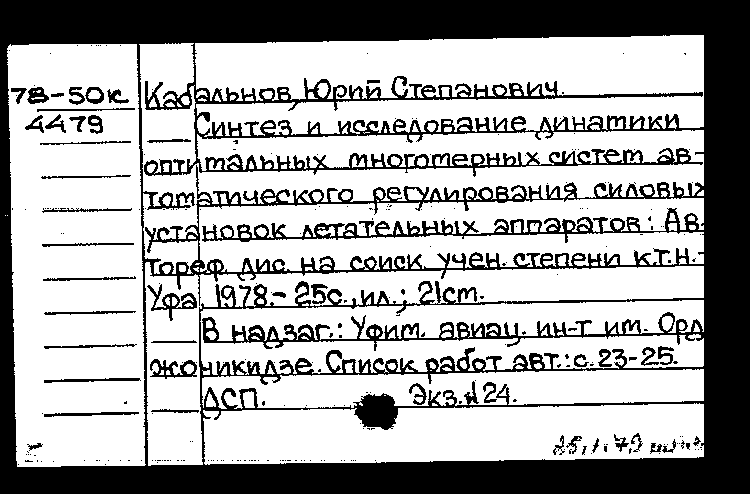 78-50к Кабальнов, Юрий Степанович.
4479 Синтез и исследование динамики
оптимальных многомерных систем ав-
томатического регулирования силовых
установок летательных аппаратов: Ав-
тореф. дис. на соиск. учен. степени к.т.н.-
Уфа, 1978.- 25с., ил.; 21см.
В надзаг.: Уфим. авиац. ин-т им. Орд
жоникидзе. Список работ авт.: с. 23-25.
ДСП. Экз.№24.
25.1.79